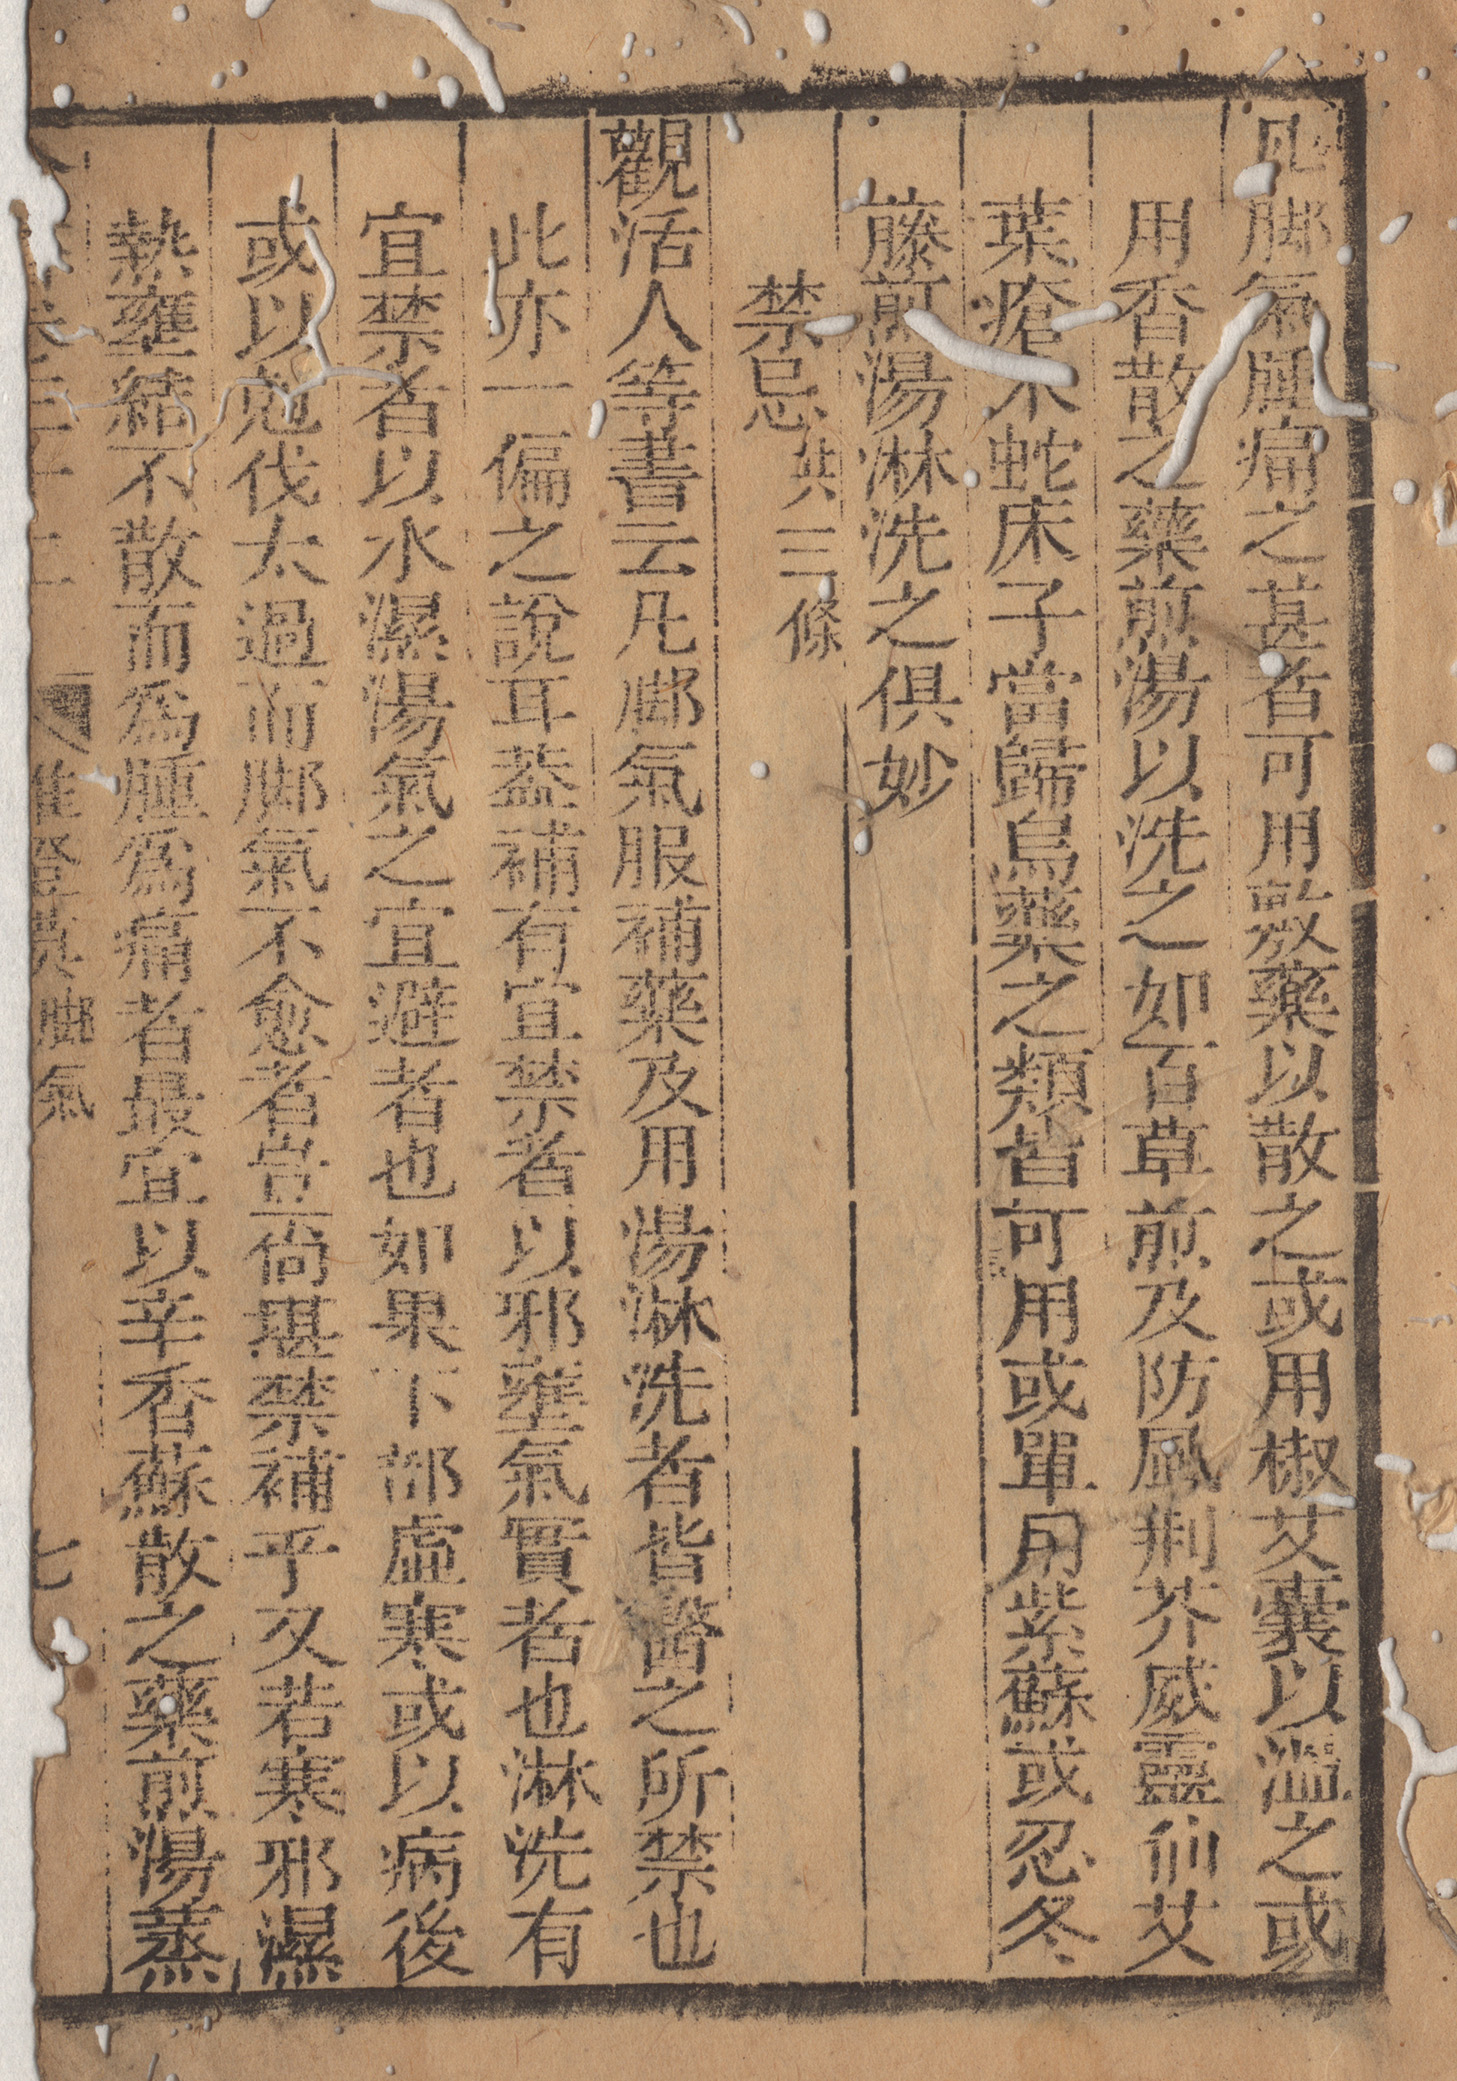 凡脚氣腫痛之甚者可用敷藥以散之或用椒艾囊以溫之或
用香散之藥煎湯以洗之如百草煎及防風荊芥威靈仙艾
葉蒼朮蛇床子當歸烏藥之類皆可用或單用紫蘇或忍冬
藤煎湯淋洗之俱妙
禁忌共三條
觀活人等書云凡脚氣服補藥及用湯淋洗者皆醫之所禁也
此亦一偏之說耳葢補有宜禁者以邪壅氣實者也淋洗有
宜禁者以水濕湯氣之宜避者也如果下部虛寒或以病後
或以尅伐太過而脚氣不愈者豈尚堪禁補乎又若寒邪濕
熱壅結不散而為腫為痛者最宜以辛香蘇散之藥煎湯蒸
雜證謨 脚氣 七